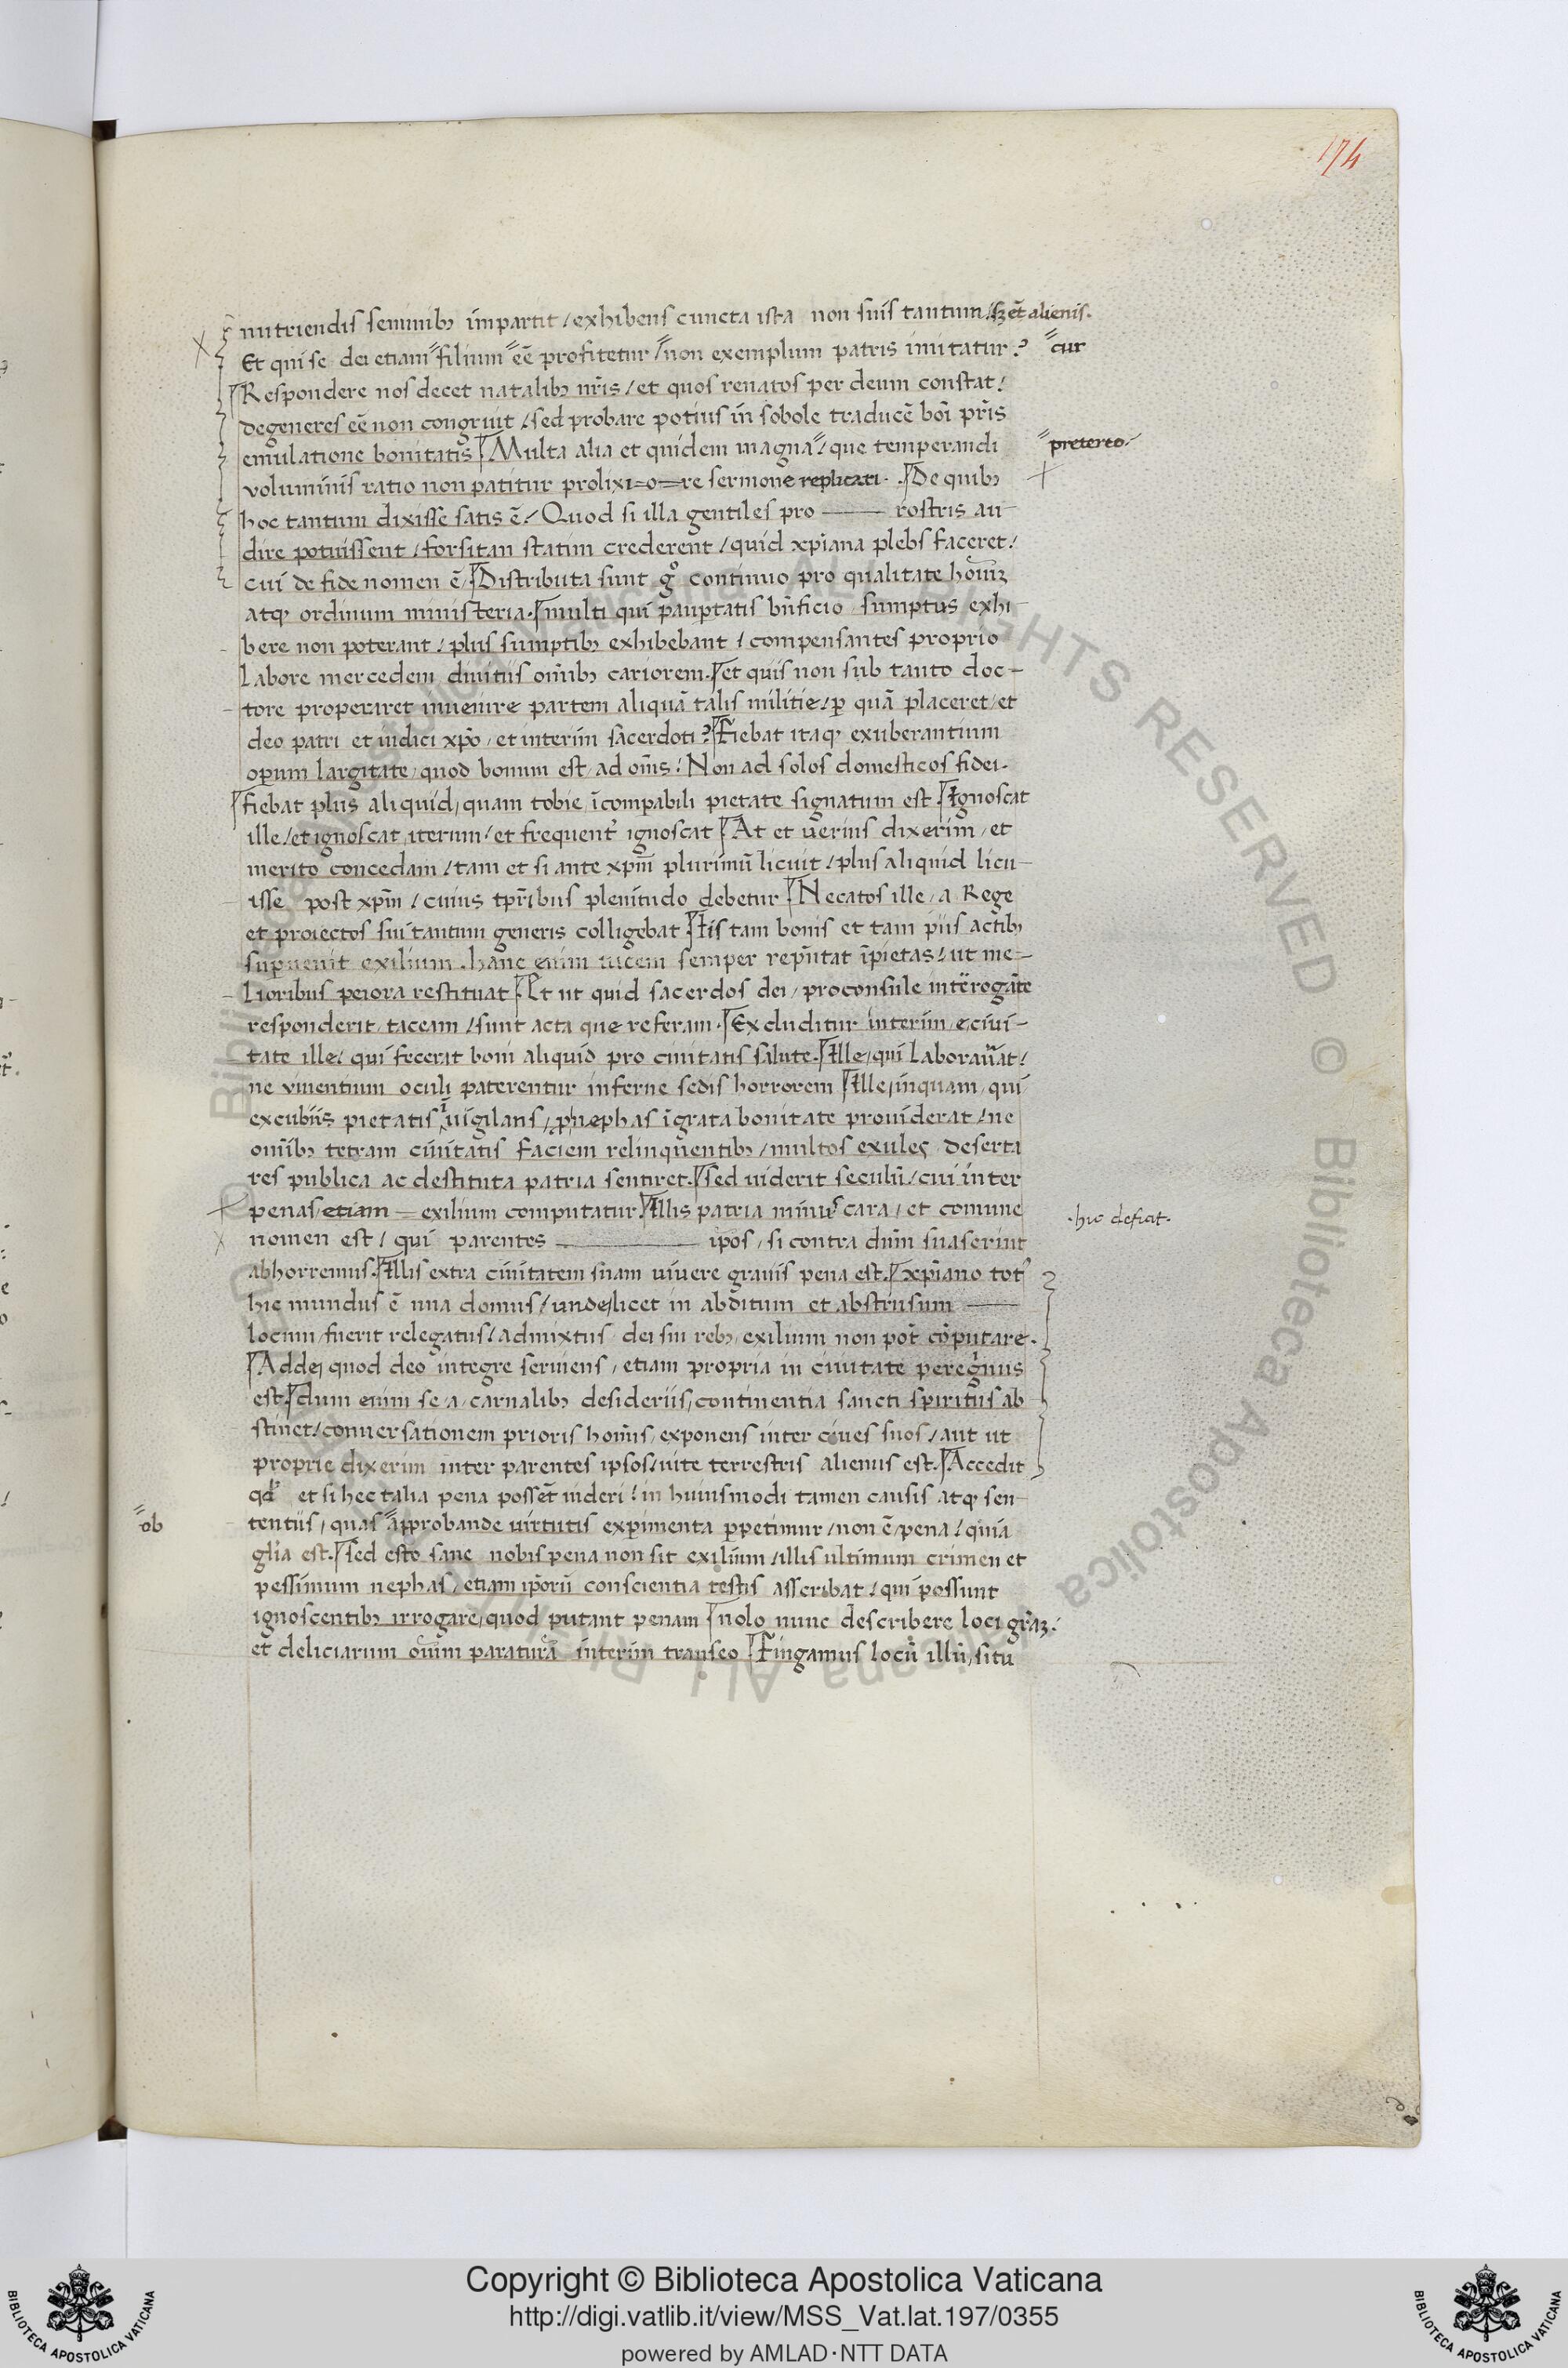 174
nutriendis seminibꝫ impartit / exhibens cuncta ista non suis tantum / sꝫ et̄ alienis.
Et qui se dei etiam filium eē profitetur / non exemplum patris imitatur? cur
Respondere nos decet natalibꝫ nr̄is / et quos renatos per deum constat /
degeneres eē non congruit / sed probare potius in sobole traducē boī pr̄is
emulatione bonitatis Multa alia et quidem magna / que temperandi pretereo
voluminis ratio non patitur prolixi=o=re sermone replicari. De quibꝫ
hoc tantum dixisse satis ē / Quod si illa gentiles pro —— rostris au
dire potuissent / forsitan statim crederent / quid xp̄iana plebs faceret /
cui de fide nomen ē / Distributa sunt gͦ continuo pro qualitate hoīuꝫ
atqꝫ ordinum ministeria. multi qui paup̄tatis bn̄ficio sumptus exhi
bere non poterant / plus sumptibꝫ exhibebant / compensantes proprio
labore mercedem divitiis om̄ibꝫ cariorem. et quis non sub tanto doc-
tore properaret invenire partem aliquā talis militie / ꝑ quā placeret / et
deo patri et iudici xp̄o / et interim sacerdoti? Fiebat itaqꝫ exuberantium
oꝑum largitate / quod bonum est / ad om̄s / Non ad solos domesticos fidei.
fiebat plus aliquid / quam tobie īcompabili pietate signatum est Ignoscat
ille / et ignoscat iterum / et frequenter̄ ignoscat At et verius dixerim / et
merito concedam / tam et si ante xp̄m plurimū licuit / plus aliquid licu-
isse post xp̄m / cuius tp̄ribus plenitudo debetur Necatos ille / a Rege
et proiectos sui tantum generis colligebat His tam bonis et tam piis actibꝫ
suꝑvenit exilium. hanc enim vicem semper rep̄utat īpietas / ut me-
lioribus peiora restituat. Et ut quid sacerdos dei / proconsule interrogāte
responderit / taceam / sunt acta que referam. Excluditur interim / e civi-
tate ille / qui fecerit boni aliquid pro civitatis salute. Ille / qui laboraūat /
ne viventium oculi paterentur inferne sedis horrorem Ille inquam / qui
excubiis pietatis ī vigilans / pͥ nephas īgrata bonitate providerat / ne
om̄ibꝫ tetram civitatis faciem relinquentibꝫ / multos exules deserta
res publica ac destituta patria sentiret. sed viderit seculū / cui inter
penas / etiam — exilium computatur. Illis patria minus cara / et comune .hic deficit.
nomen est / qui parentes —— ipos / si contra dn̄m suaserint
abhorremus. Illis extra civitatem suam vivere gravis pena est. xp̄iano tot̄
hic mundus ē una domus / unde licet in abditum et abstrusum ——
locum / fuerit relegatus / admixtus dei sui rebꝫ / exilium non pot̄ cōputare.
Adde / quod deo integre serviens / etiam propria in civitate peregrinus
est. dum enim se / a / carnalibꝫ desideriis / continentia sancti spiritus ab
stinet / conversationem prioris homīs / exponens inter cives suos / aut ut
proprie dixerim inter parentes ipsos / vite terrestris alienus est. Accedit
qđ et si hec talia pena possēt videri / in huiusmodi tamen causis atqꝫ sen-
ob tentiis / quas approbande virtutis exꝑimenta ꝑpetimur / non ē pena / quia
glīa est. sed esto sane nobis pena non sit exilium / illis ultimum crimen et
pessimum nephas / etiam ip̄orū conscientia testis asscribat / qui possunt
ignoscentibꝫ irrogare / quod putant penam nolo nunc describere loci grāꝫ /
et deliciarum omīum paraturā interim transeo Fingamus locū illū / situ
Copyright © Biblioteca Apostolica Vaticana
http://digi.vatlib.it/view/MSS_Vat.lat.197/0355
powered by AMLAD·NTT DATA